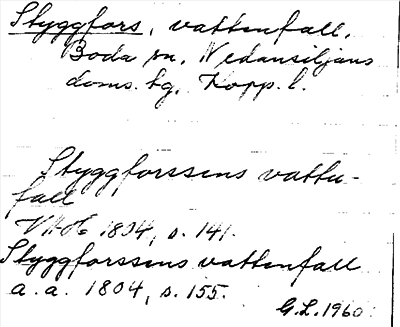 Styggfors, vattenfall,
Boda sn, Nedansiljans
doms. tg, Kopp. l.
Styggforssens vattu-
fall
1804, s. 141.
Styggforssens vattenfall
a. a. 1804, s. 155.
G.L. 1960.